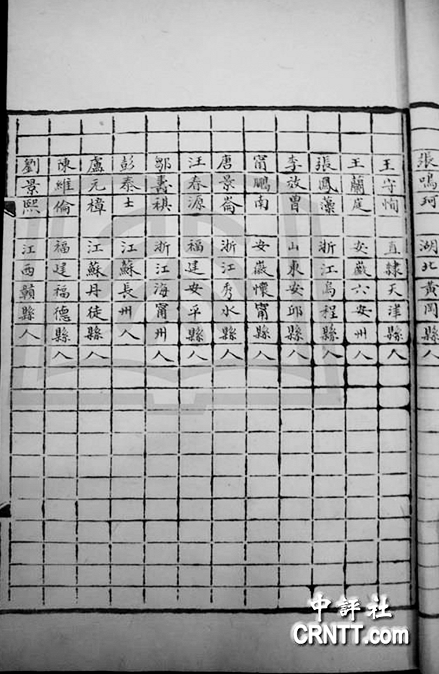 張鳴珂 湖北黃岡
王守恂 直隸天津縣人
王蘭庭 安徽六安州人
張鳳藻 浙江烏程縣人
李放曾 山東安邱縣人
甯鵬南 安徽懷甯縣人
唐景崙 浙江秀水縣人
汪春源 福建安平縣人
鄒壽祺 浙江海甯州人
彭泰士 江蘇長州人
盧元樟 江蘇丹徒縣人
陳維倫 福建福德縣人
劉景熙 江西贛縣人
中評社
CRNTT.com